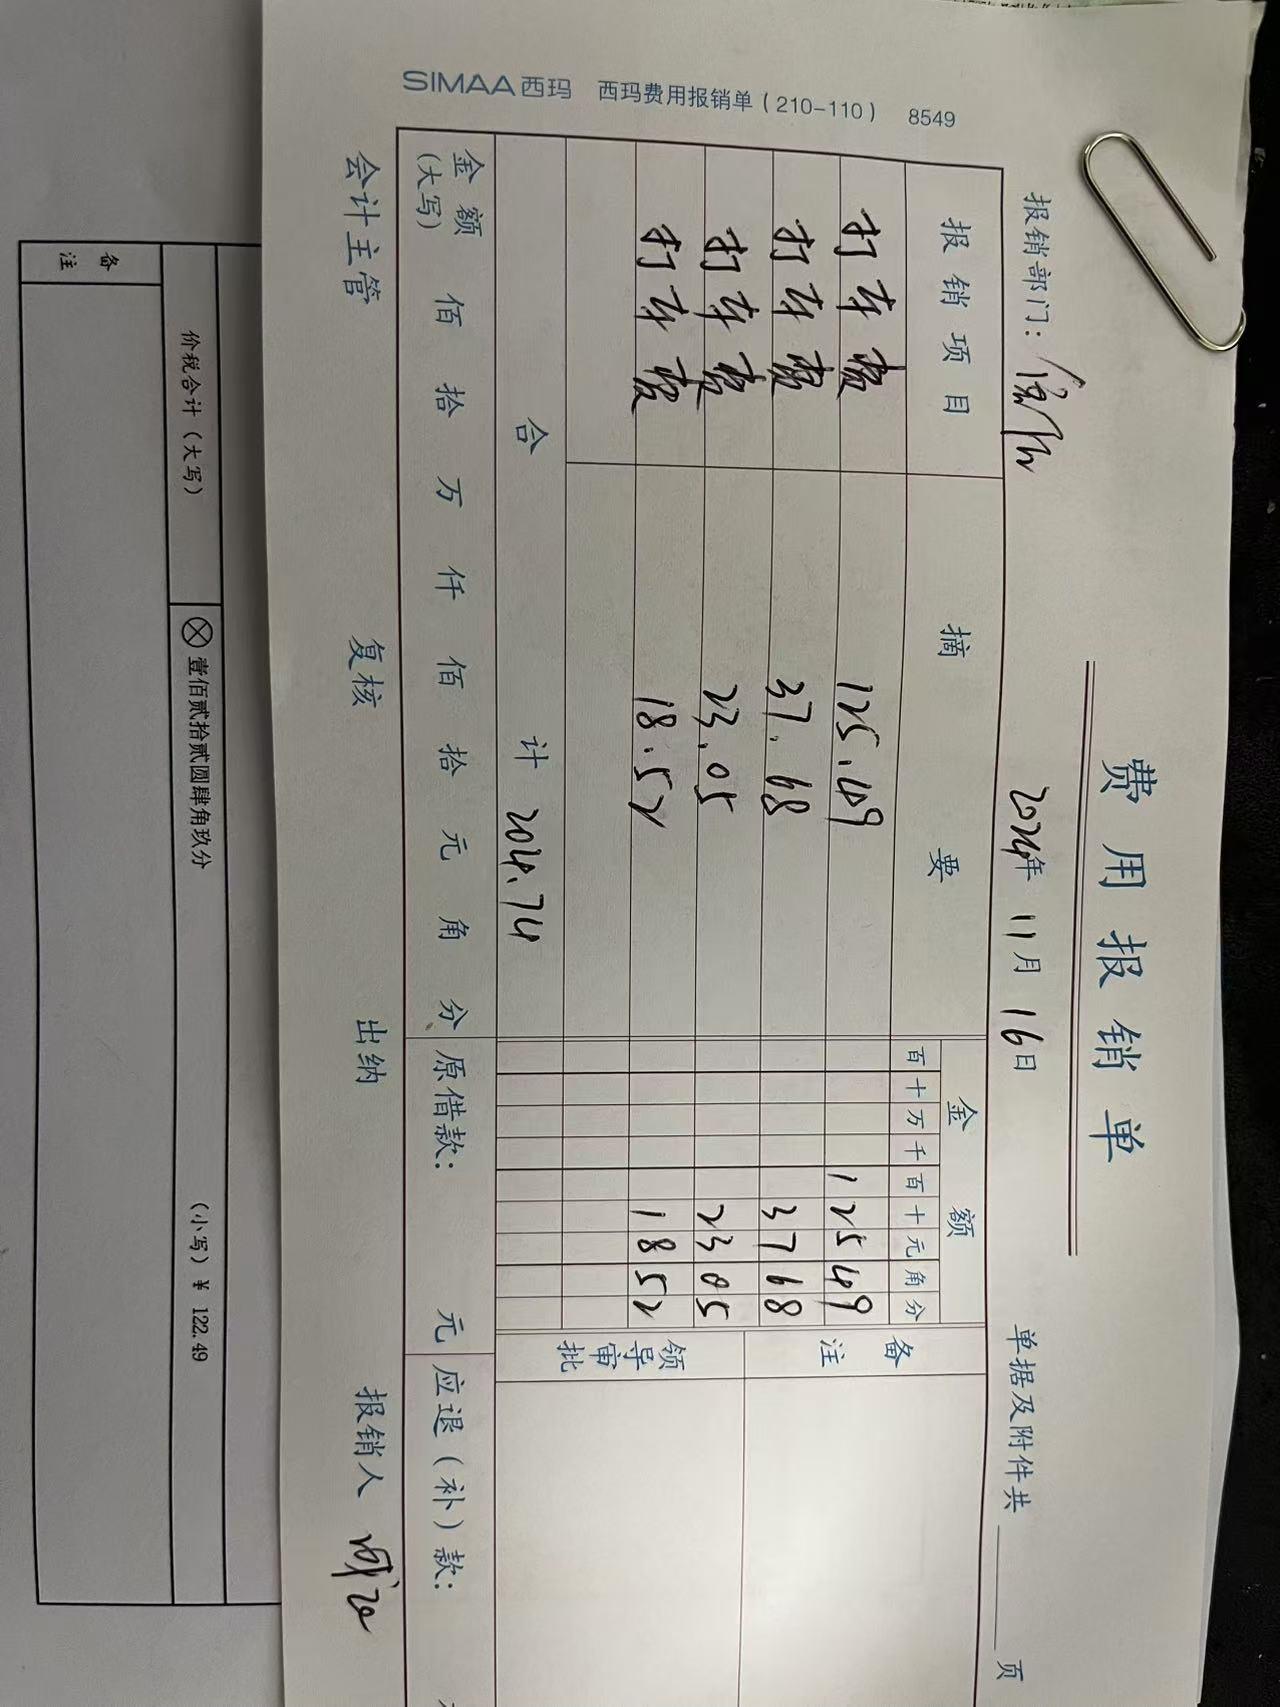 费用报销单
报销部门:
2024年 11月 16日
单据及附件共 页
报销项目 摘要 金额 备注
百 十 万 千 百 十 元 角 分
打车费 125.49 1 2 5 4 9
打车费 37.68 3 7 6 8
打车费 23.05 2 3 0 5
打车费 18.52 1 8 5 2
领导审批
合计 204.74
金额(大写) 佰 拾 万 仟 佰 拾 元 角 分 原借款: 元 应退(补)款:
会计主管 复核 出纳 报销人
SIMAA西玛 西玛费用报销单(210-110) 8549
价税合计(大写) ⊗壹佰贰拾贰圆肆角玖分 (小写)¥ 122.49
备注